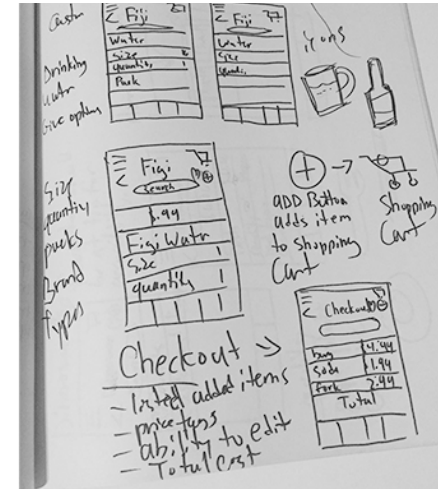 Fiji
Water
Size
quantity
Pack
Fiji
Water
Size
Drinking
Give options
Size
quantity
packs
Brand
Types
Figi
search
1.99
Figi Watr
Size 1
quantity 1
ADD Button
adds item
to shopping
Cart
Shopping
Cart
Checkout
- listed added items
- price tags
- ability to edit
- Total Cost
Checkout
4.99
Soda 1.99
2.99
Total